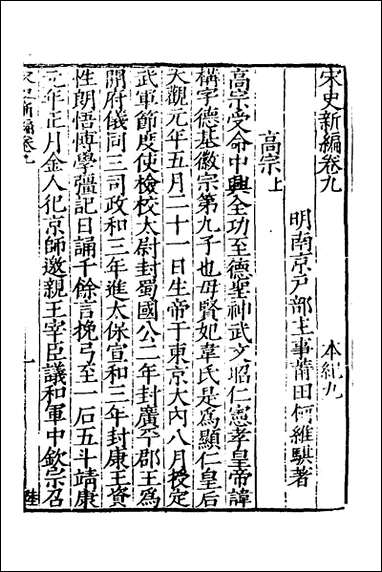 宋史新編卷九 本紀九
明南京戶部主事莆田柯維騏著
高宗上
高宗受命中興全功至德聖神武文昭仁憲孝皇帝諱
構字德基徽宗第九子也母賢妃韋氏是爲顯仁皇后
大觀元年五月二十一日生帝于東京大內八月授定
武軍節度使檢校太尉封蜀國公二年封廣平郡王爲
開府儀同三司政和三年進太保宣和三年封康王資
性朗悟博學彊記日誦千餘言挽弓至一石五斗靖康
元年正月金人犯京師邀親王宰臣議和軍中欽宗召
宋史新編卷九
一